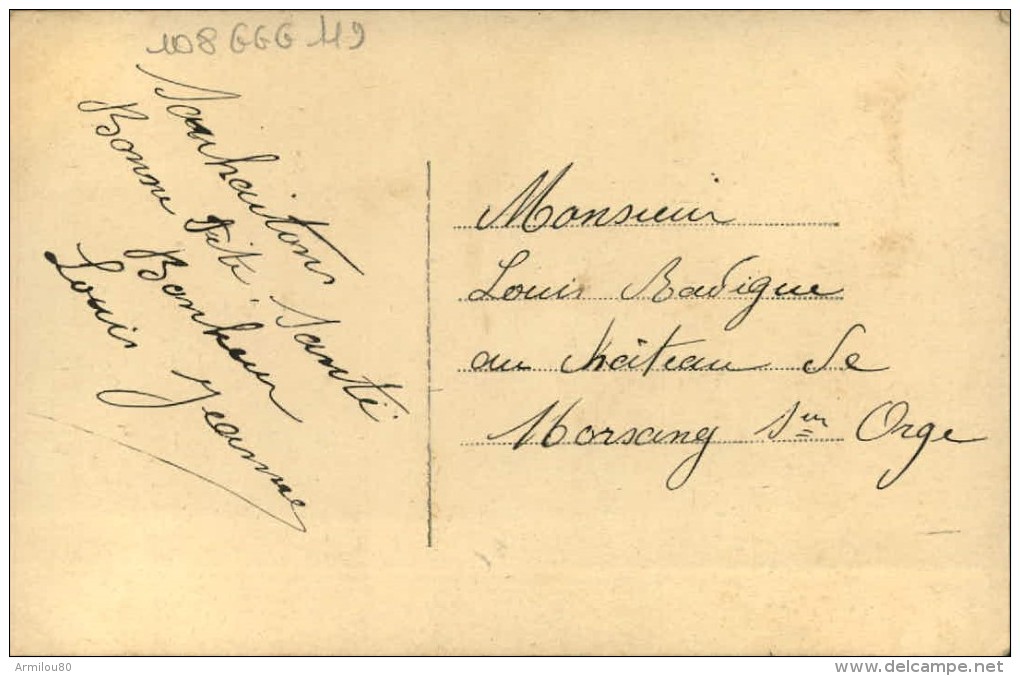 108 GGG 119
Souhaitons
Bonne Fête. Santé
Bonheur
Louis Jeanne
Monsieur
Louis Badigue
au château de
Morsang Sur Orge
Armilou80
www.delcampe.net